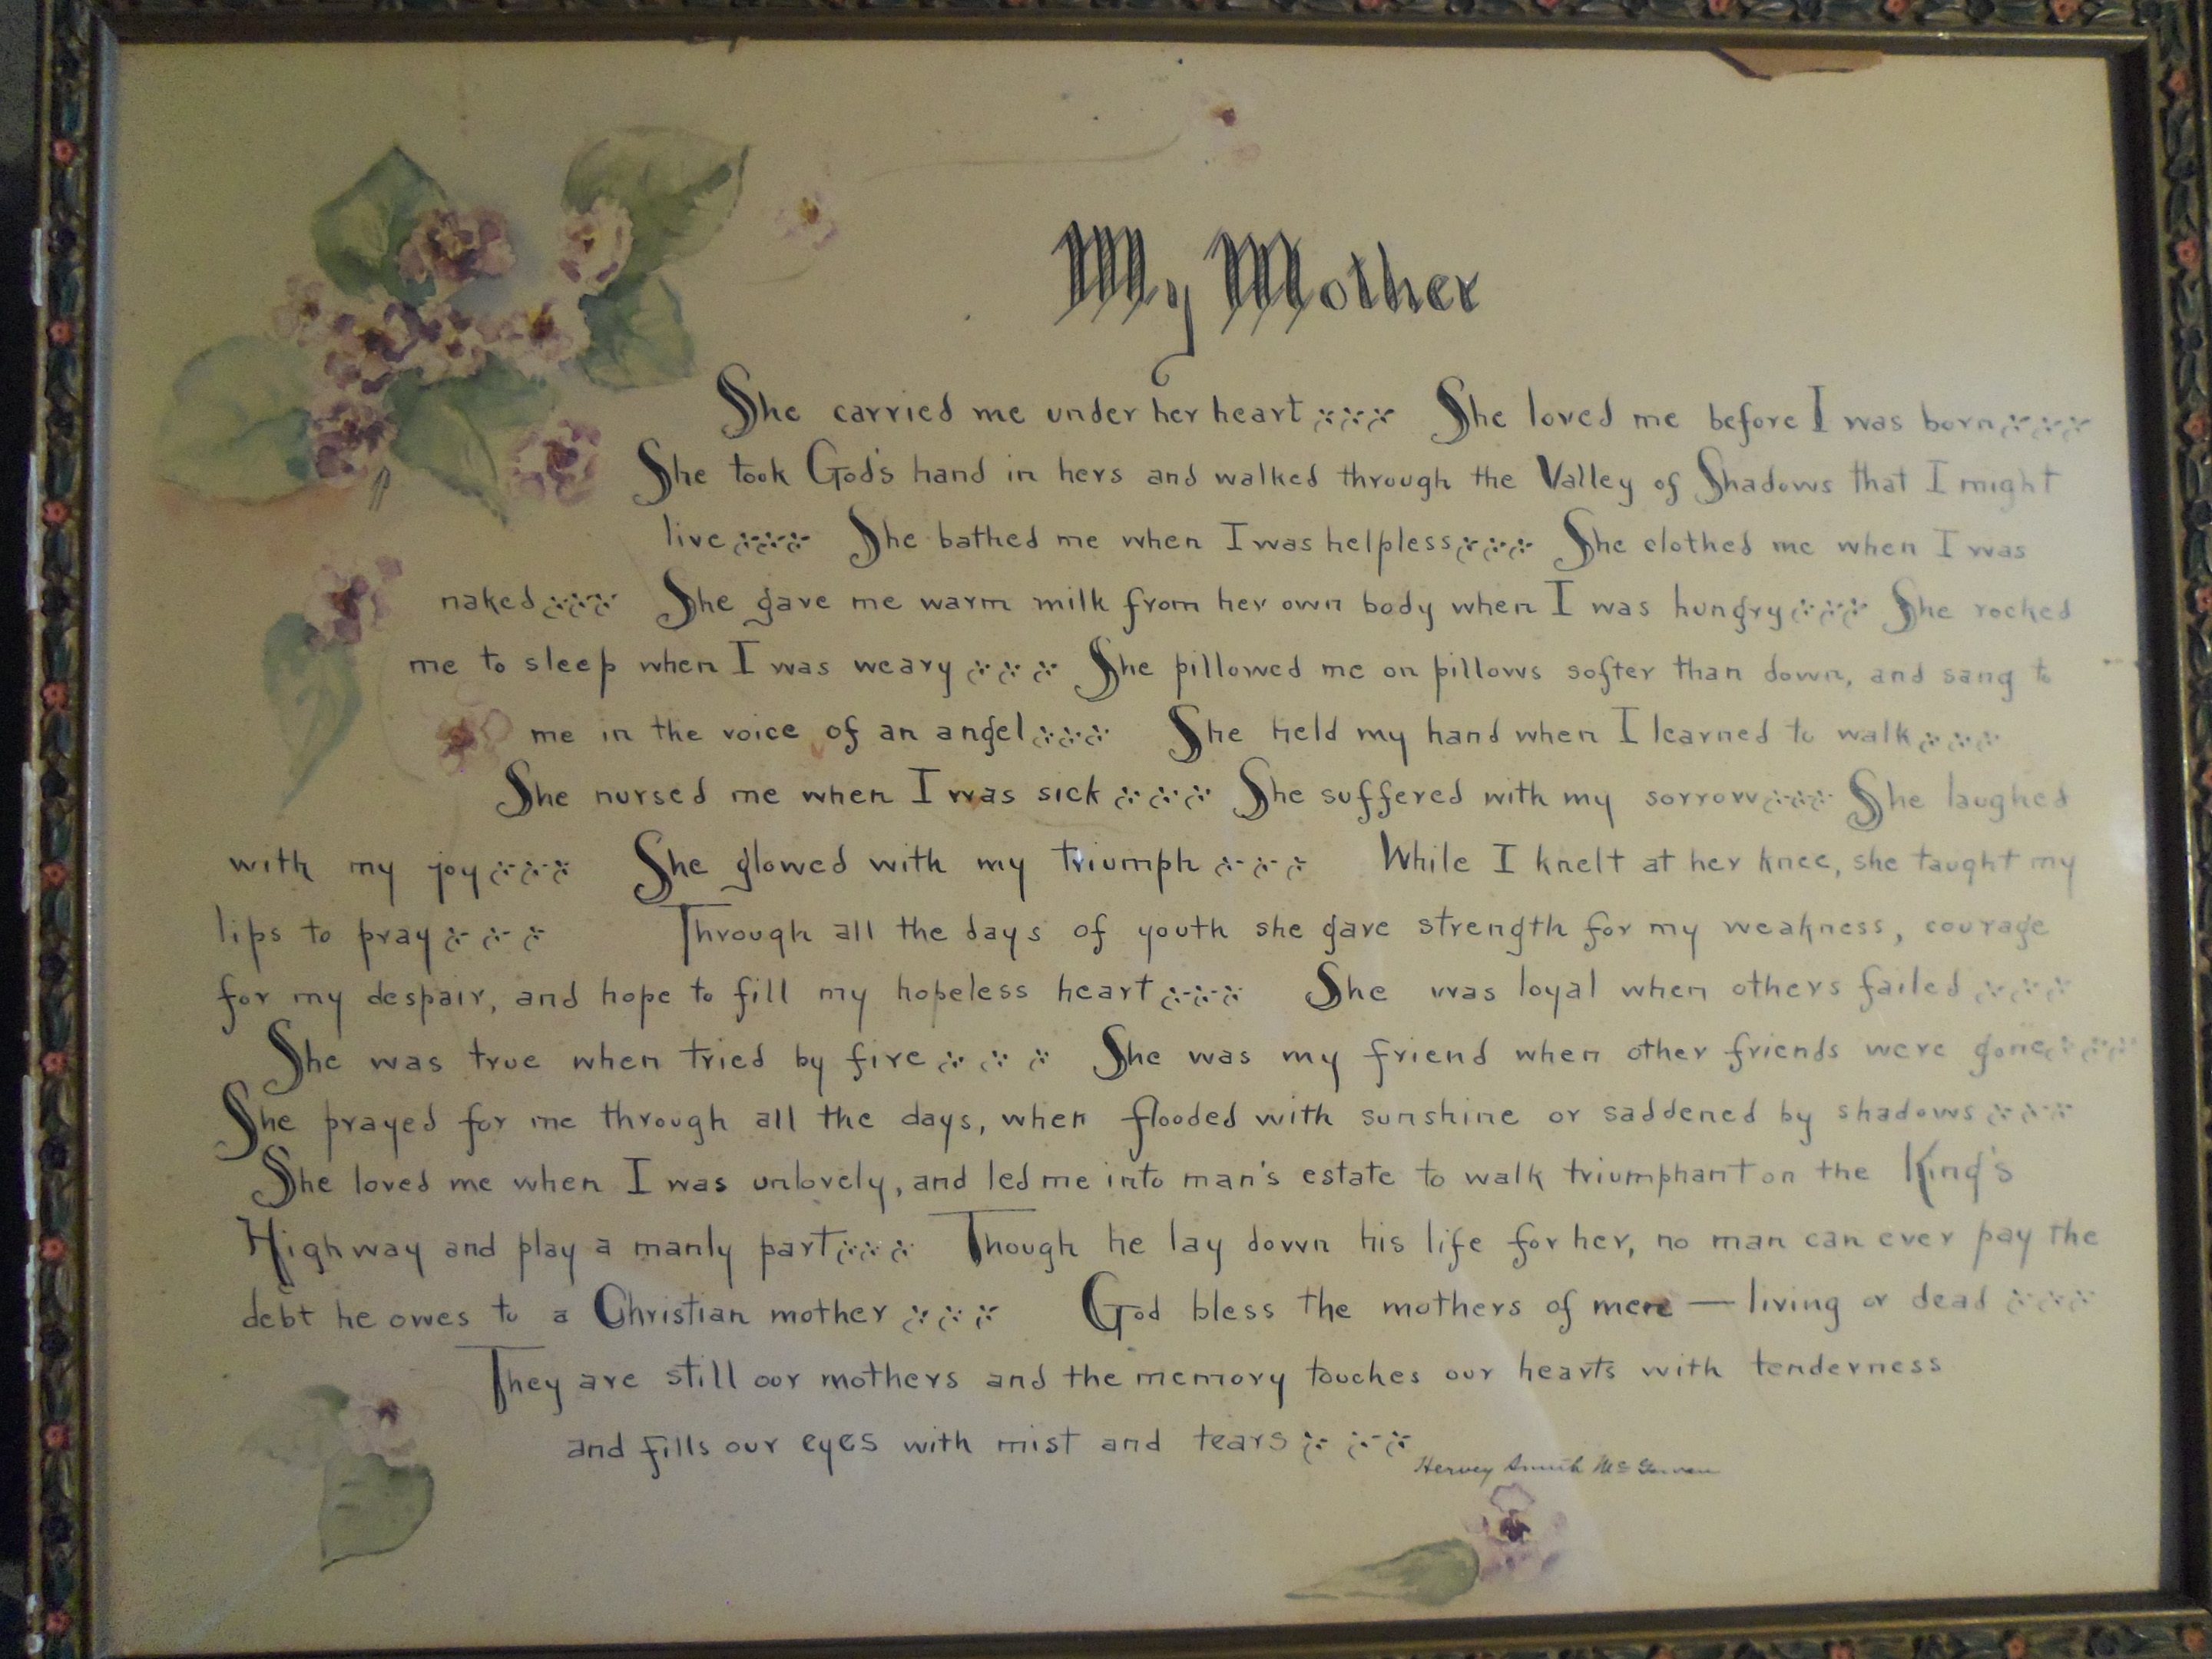 My Mother
She carried me under her heart She loved me before I was born
She took God's hand in hers and walked through the Valley of Shadows that I might
live She bathed me when I was helpless She clothed me when I was
naked She gave me warm milk from her own body when I was hungry She rocked
me to sleep when I was weary She pillowed me on pillows softer than down, and sang to
me in the voice of an angel She held my hand when I learned to walk
She nursed me when I was sick She suffered with my sorrow She laughed
with my joy She glowed with my triumph While I knelt at her knee, she taught my
lips to pray Through all the days of youth she gave strength for my weakness, courage
for my despair, and hope to fill my hopeless heart She was loyal when others failed
She was true when tried by fire She was my friend when other friends were gone
She prayed for me through all the days, when flooded with sunshine or saddened by shadows
She loved me when I was unlovely, and led me into man's estate to walk triumphant on the King's
Highway and play a manly part Though he lay down his life for her, no man can ever pay the
debt he owes to a Christian mother God bless the mothers of men — living or dead
They are still our mothers and the memory touches our hearts with tenderness
and fills our eyes with mist and tears
Hervey Smith